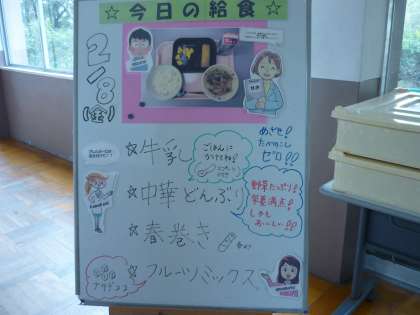 ☆今日の給食☆
2/8
(金)
めざせ!
たべのこし
ゼロ!!
☆牛乳
ごはんに
かけてね!
☆中華どんぶり
野菜たっぷり!
栄養満点!
しかも
おいしい!!
☆春巻き
☆フルーツミックス
ナタデココ